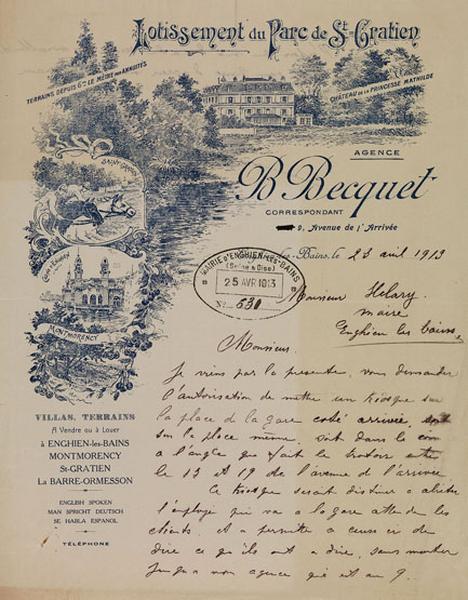 Lotissement du Parc de St-Gratien
TERRAINS DEPUIS 6 LE MÈTRE PAR ANNUITÉS
CHÂTEAU DE LA PRINCESSE MATHILDE
AGENCE
B. Becquet
CORRESPONDANT
9, Avenue de l'Arrivée
-les-Bains, le 23 avril 1913
MAIRIE D'ENGHIEN-LES-BAINS
(Seine & Oise)
25 AVR 1913
No 530
Monsieur Helary
maire
Enghien les bains
SAINT-GRATIEN
MONTMORENCY
Monsieur.
Je viens par la presente, vous demander
l'autorisation de mettre un kiosque sur
la place de la gare coté arrivée, soit
sur la place meme, soit dans le
a l'angle que fait le trottoir entre
le 13 et 19 de l'avenue de l'arrivée
Ce kiosque serait destiner a abriter
l'employé qui va a la gare attendre les
clients. et a permettre a ceux ci de
dire ce qu'ils ont a dire, sans monter
jusqu'a mon agence qui est au 9.
VILLAS, TERRAINS
A Vendre ou à Louer
à ENGHIEN-les-BAINS
MONTMORENCY
St-GRATIEN
La BARRE-ORMESSON
ENGLISH SPOKEN
MAN SPRICHT DEUTSCH
SE HABLA ESPANOL
TÉLÉPHONE